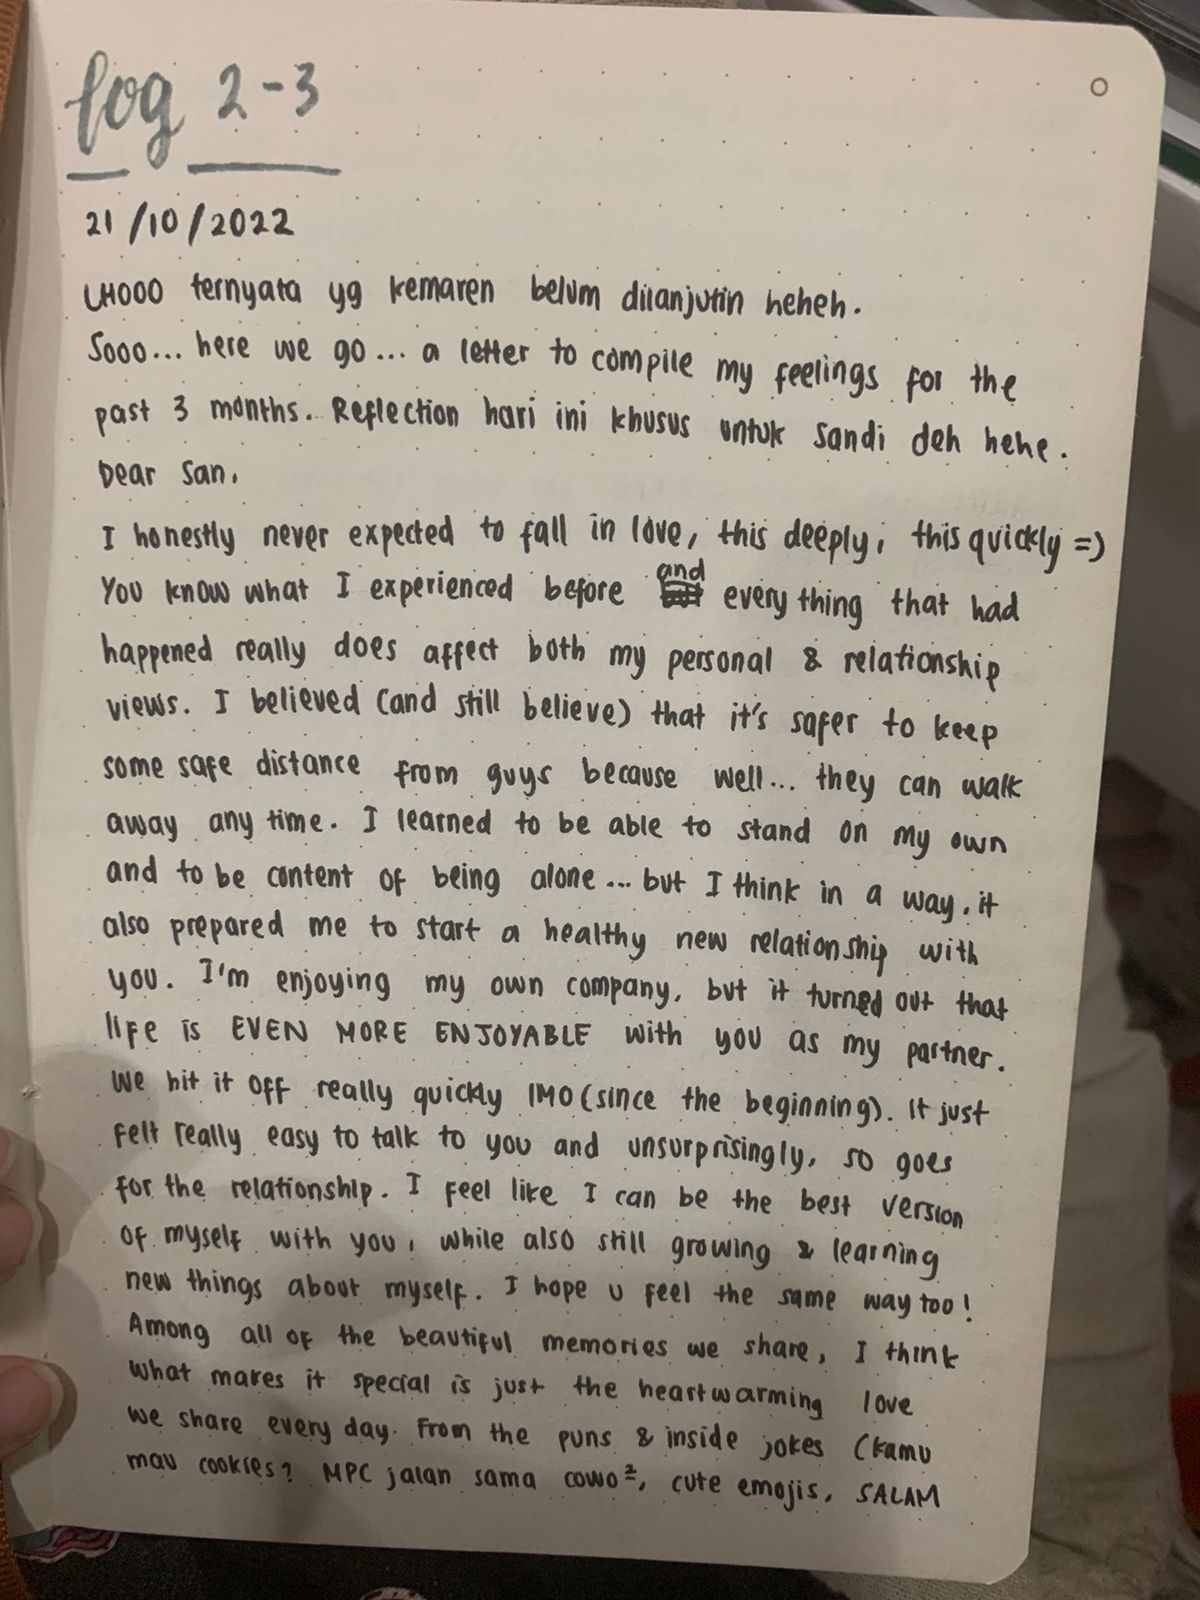 log 2-3
21/10/2022
LHOOO ternyata yg kemaren belum dilanjutin heheh.
Sooo... here we go... a letter to compile my feelings for the
past 3 months. Reflection hari ini khusus untuk Sandi deh hehe.
Dear San,
I honestly never expected to fall in love, this deeply, this quickly =)
You know what I experienced before and everything that had
happened really does affect both my personal & relationship
views. I believed (and still believe) that it's safer to keep
some safe distance from guys because well... they can walk
away any time. I learned to be able to stand on my own
and to be content of being alone... but I think in a way, it
also prepared me to start a healthy new relationship with
you. I'm enjoying my own company, but it turned out that
life is EVEN MORE ENJOYABLE with you as my partner.
We hit it off really quickly IMO (since the beginning). It just
felt really easy to talk to you and unsurprisingly, so goes
for the relationship. I feel like I can be the best version
of myself with you, while also still growing & learning
new things about myself. I hope u feel the same way too!
Among all of the beautiful memories we share, I think
what makes it special is just the heartwarming love
we share every day. From the puns & inside jokes (kamu
mau cookies? MPC jalan sama cowo², cute emojis, SALAM